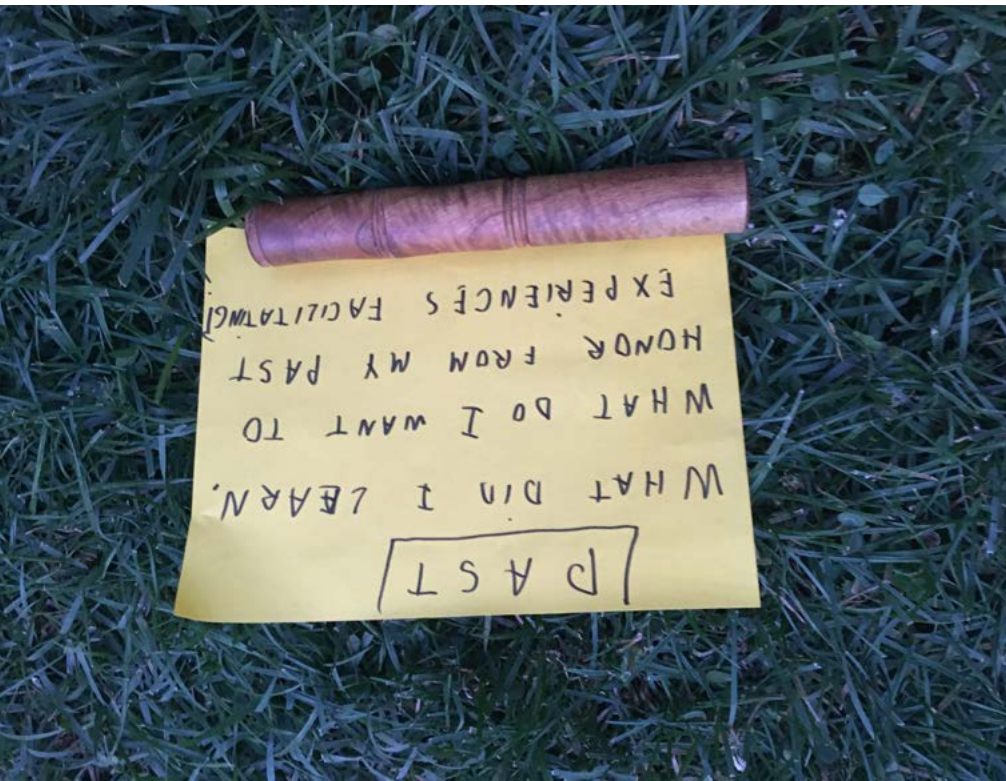 PAST
WHAT DID I LEARN.
WHAT DO I WANT TO
HONOR FROM MY PAST
EXPERIENCES FACILITATING?